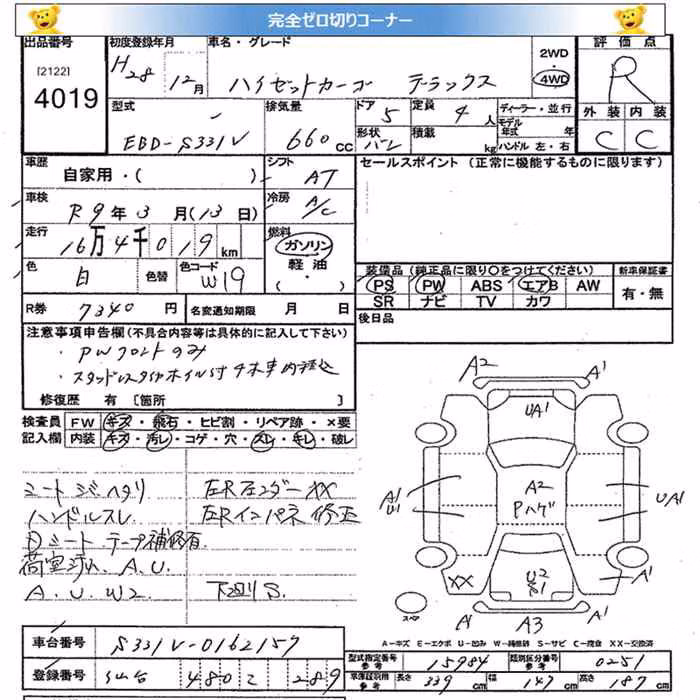 完全ゼロ切りコーナー
出品番号 [2122] 4019
初度登録年月 H28 12月
車名・グレード ハイゼットカーゴ デラックス
2WD 4WD
評価点 R
外装 内装
C C
型式 EBD-S331V
排気量 660 cc
ドア 5 形状 バン
定員 4人 積載 kg
ディーラー・並行
モデル年式 年
ハンドル 左・右
車歴 自家用・( )
シフト AT
セールスポイント (正常に機能するものに限ります)
車検 R9年3月(13日)
冷房 A/C
走行 16万4千019km
燃料 ガソリン 軽油 ( ・ )
色 白 色替 色コード W19
装備品(純正品に限り〇をつけてください)
新車保証書
PS PW ABS エアB AW
SR ナビ TV カワ
有・無
R券 7340円 名変通知期限 月 日
後日品
注意事項申告欄(不具合内容等は具体的に記入して下さい)
・PWフロントのみ
・スタッドレスタイヤホイル付4本車内積込
修復歴 有 [箇所 ]
検査員 FW キズ・飛石・ヒビ割・リペア跡・×要
記入欄 内装 キズ・汚レ・コゲ・穴・スレ・キレ・破レ
シートジャハタリ 左Rフェンダー XX
ハンドルスレ 左Rインパネ修正
Dシートテープ補修有
荷室汚れ A.U.
A.U.W2 下廻りS.
A2 A1
UA1
A2
Pハゲ
A1 U1 UA1
XX U2 S1 A1
スペア A1 A3 A1
A-キズ E-エクボ U-凹み W-補修跡 S-サビ C-腐食 XX-交換済
車台番号 S331V-0162157
型式指定番号 参考 15984 類別区分番号 参考 0251
登録番号 仙台 480 と 289
車庫証明用 参考 長さ 339cm 幅 147cm 高さ 187cm